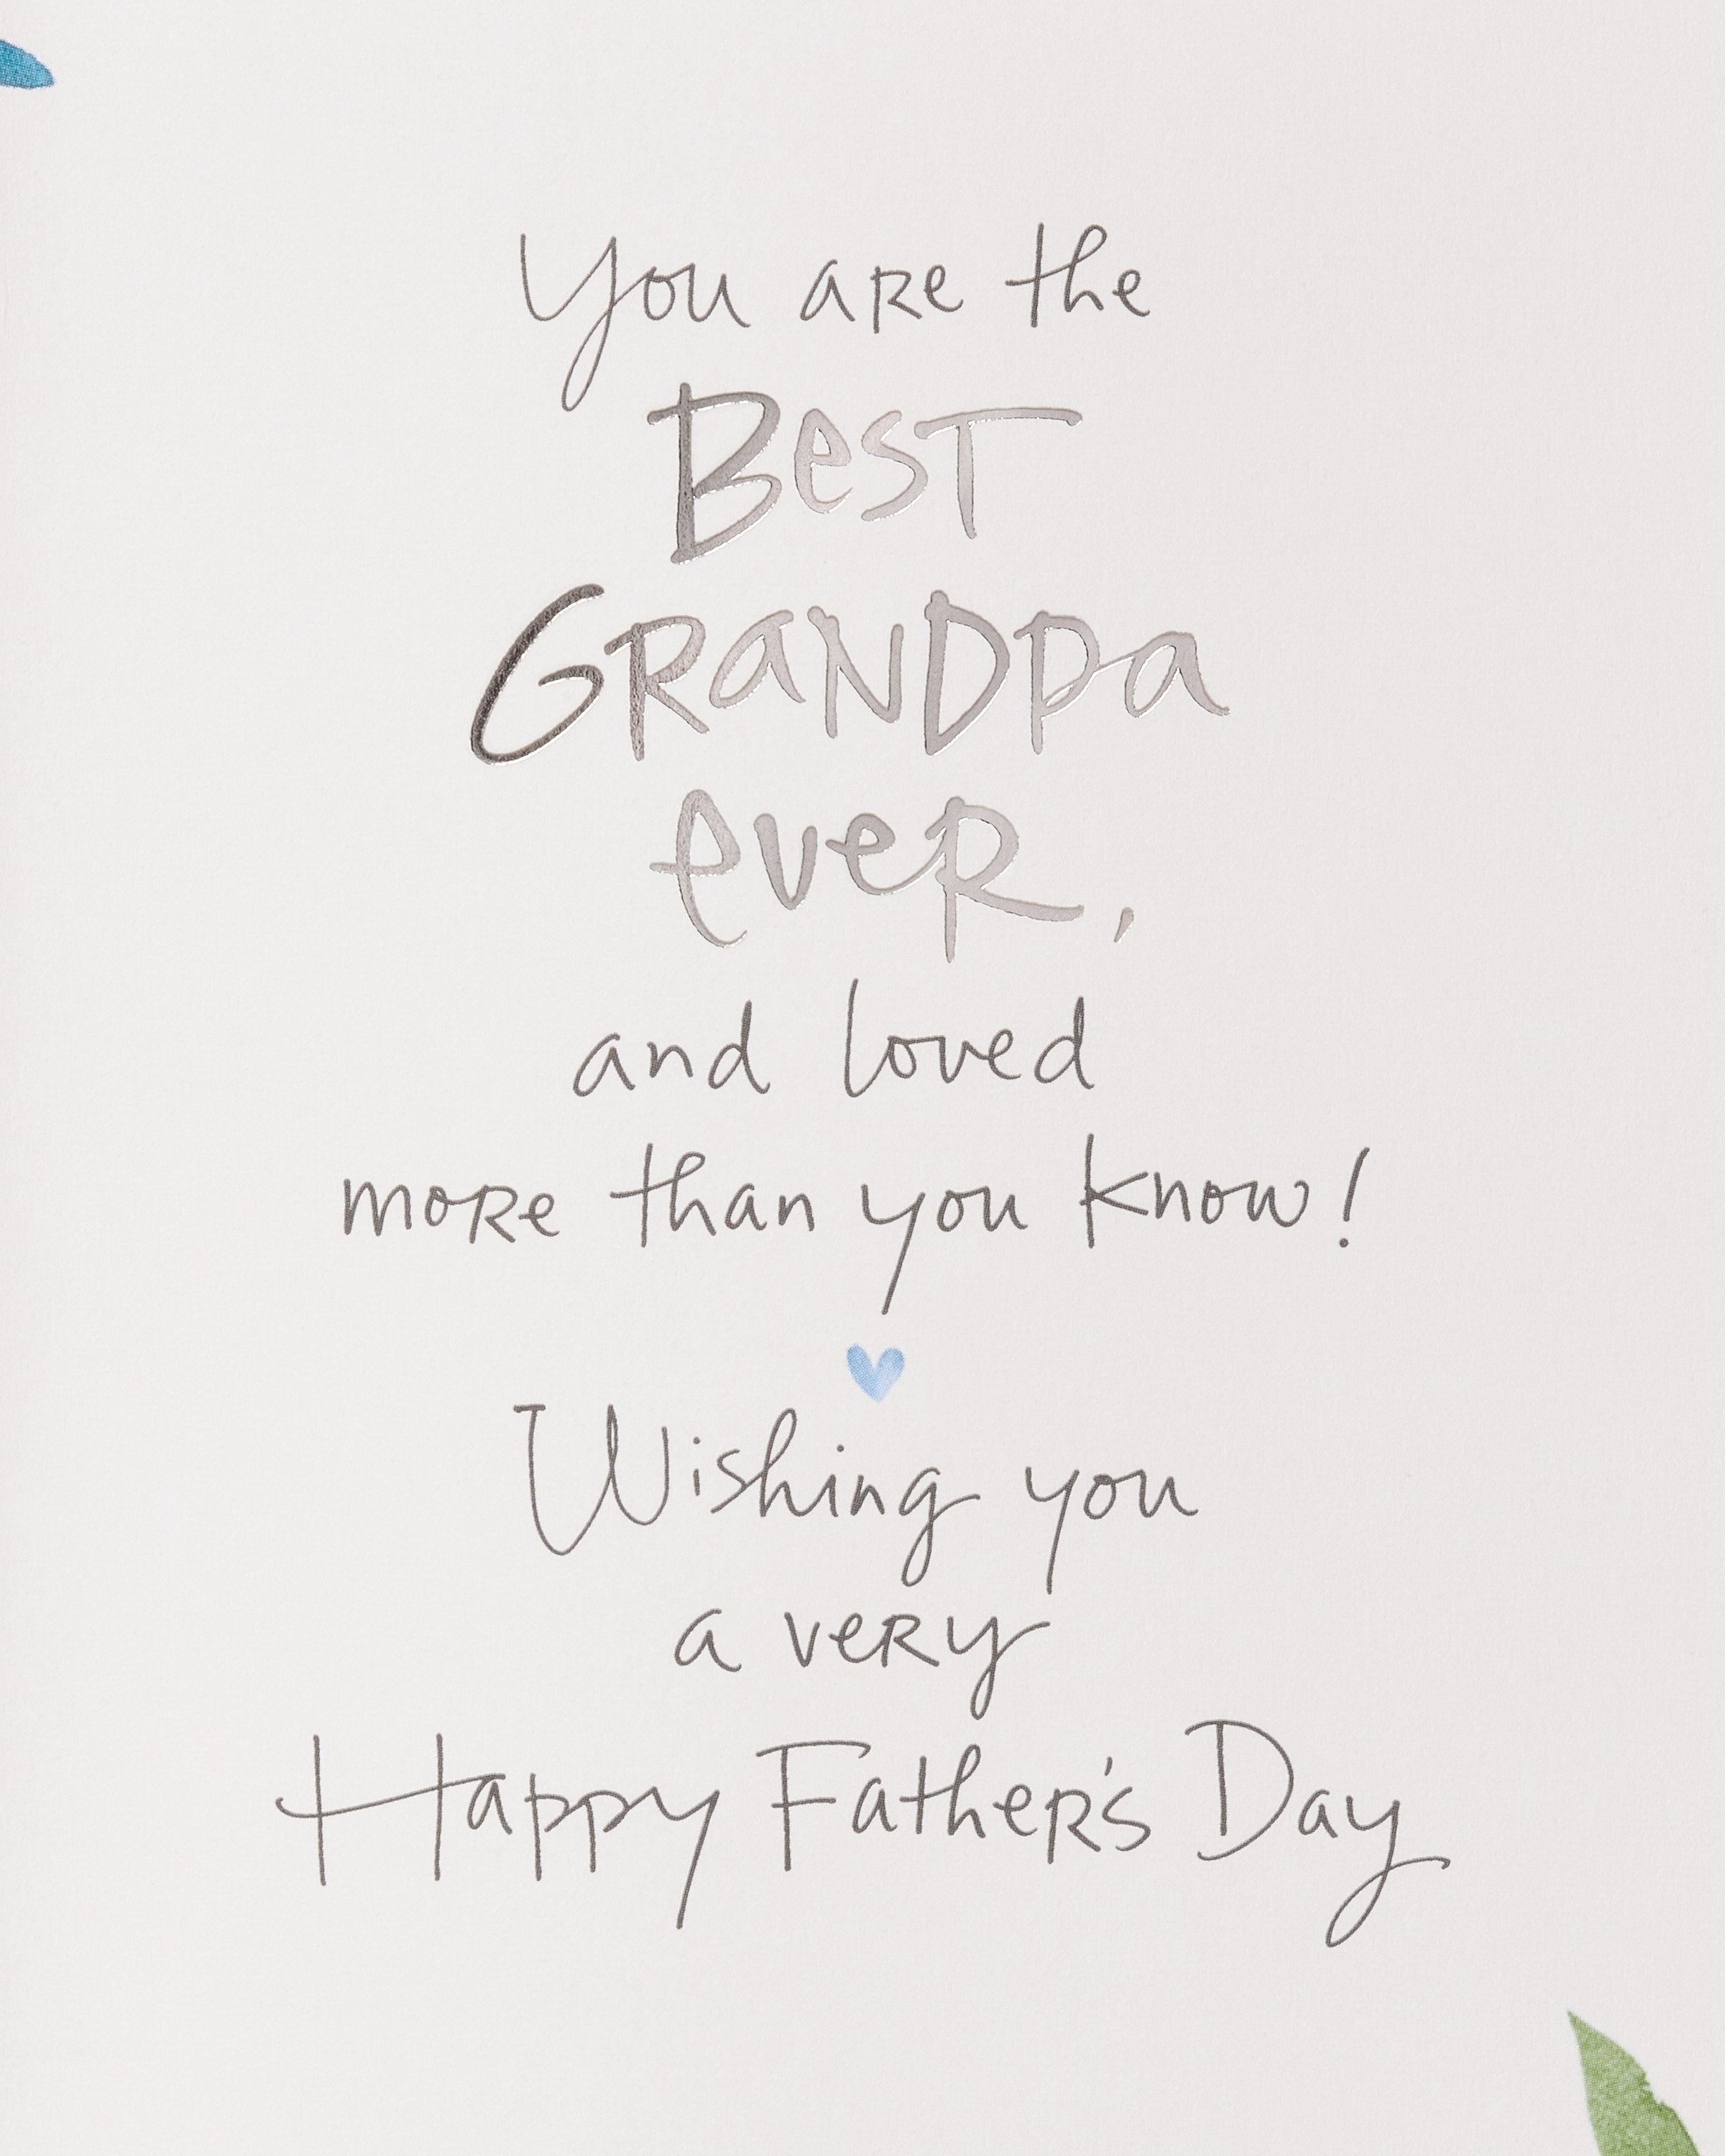 You are the
Best
Grandpa
ever,
and loved
more than you know!
Wishing you
a very
Happy Father's Day